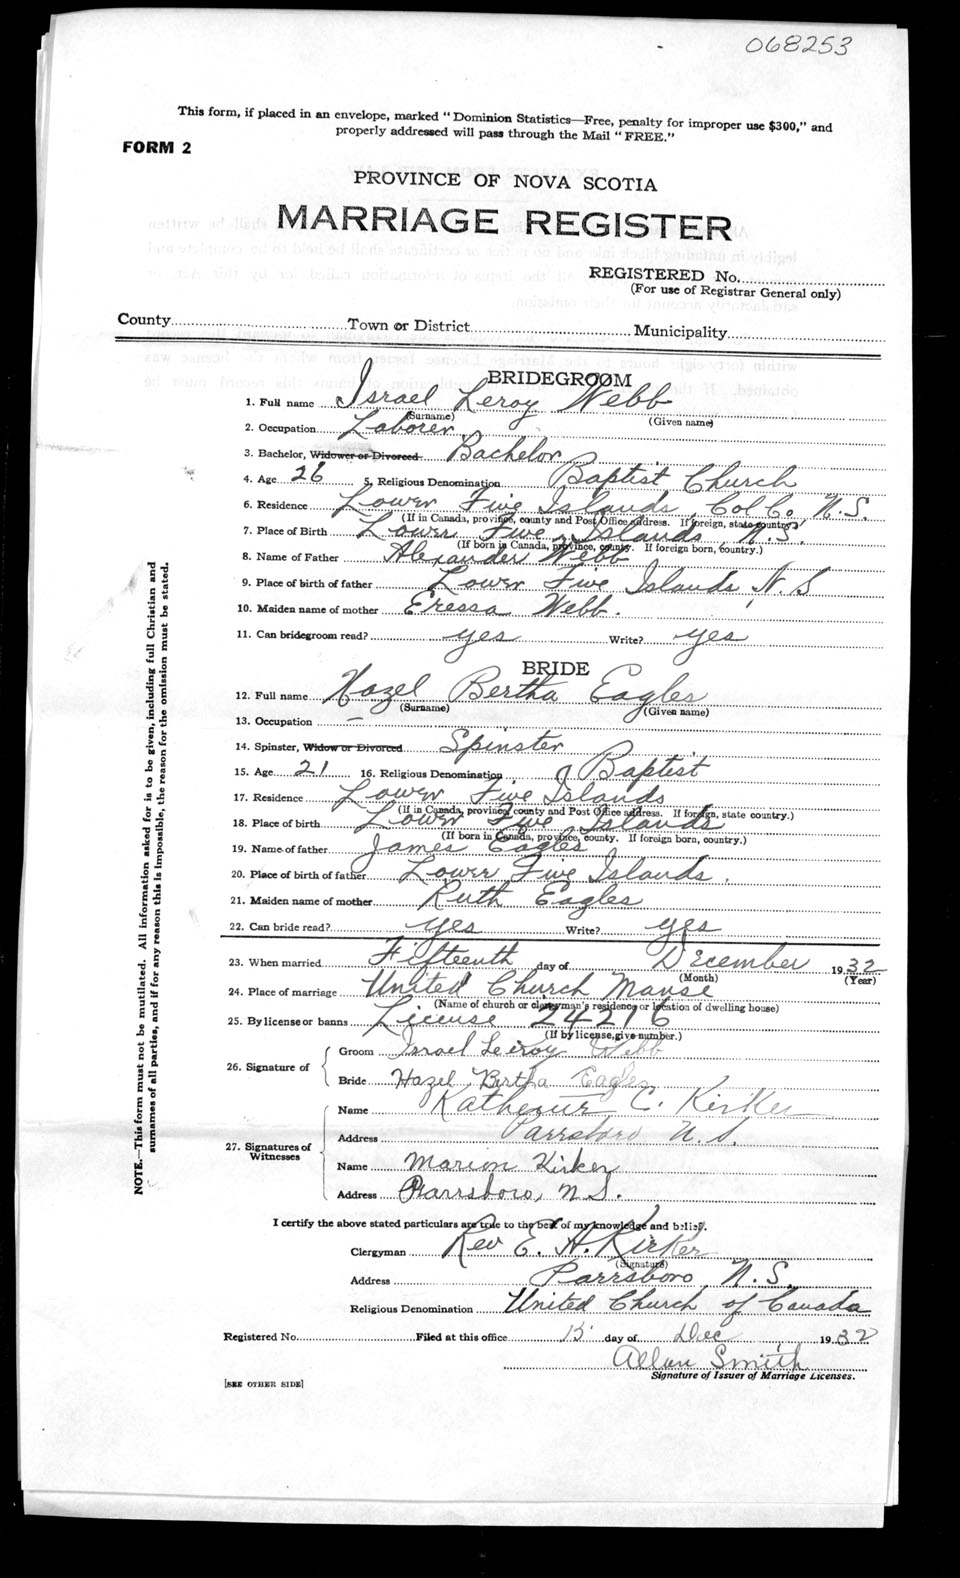 068253
This form, if placed in an envelope, marked "Dominion Statistics—Free, penalty for improper use $300," and
properly addressed will pass through the Mail "FREE."
FORM 2
PROVINCE OF NOVA SCOTIA
MARRIAGE REGISTER
REGISTERED No.
(For use of Registrar General only)
County Town or District Municipality
BRIDEGROOM
1. Full name Israel Leroy Webb
(Surname) (Given name)
2. Occupation Laborer
3. Bachelor, Widower or Divorced Bachelor
4. Age 26 5. Religious Denomination Baptist Church
6. Residence Lower Five Islands, Col Co. N.S.
(If in Canada, province, county and Post Office address. If foreign, state country)
7. Place of Birth Lower Five Islands, N.S.
(If born in Canada, province, county. If foreign born, country.)
8. Name of Father Alexander Webb
9. Place of birth of father Lower Five Islands, N.S
10. Maiden name of mother Eressa Webb.
11. Can bridegroom read? yes Write? yes
BRIDE
12. Full name Hazel Bertha Eagles
(Surname) (Given name)
13. Occupation —
14. Spinster, Widow or Divorced Spinster
15. Age 21 16. Religious Denomination Baptist
17. Residence Lower Five Islands
(If in Canada, province, county and Post Office address. If foreign, state country.)
18. Place of birth Lower Five Islands
(If born in Canada, province, county. If foreign born, country.)
19. Name of father James Eagles
20. Place of birth of father Lower Five Islands.
21. Maiden name of mother Ruth Eagles
22. Can bride read? yes Write? yes
23. When married Fifteenth day of December 1932
(Month) (Year)
24. Place of marriage United Church Manse
(Name of church or clergyman's residence or location of dwelling house)
25. By license or banns License 24216
(If by license, give number.)
26. Signature of
Groom Israel Leroy Webb
Bride Hazel Bertha Eagles
27. Signatures of Witnesses
Name Katherine C. Kirker
Address Parrsboro N.S.
Name Marion Kirker
Address Parrsboro, N.S.
I certify the above stated particulars are true to the best of my knowledge and belief.
Clergyman Rev E. A. Kirker
(Signature)
Address Parrsboro, N.S.
Religious Denomination United Church of Canada
Registered No. Filed at this office 15 day of Dec 1932
Allan Smith
Signature of Issuer of Marriage Licenses.
[SEE OTHER SIDE]
NOTE.—This form must not be mutilated. All information asked for is to be given, including full Christian and
surnames of all parties, and if for any reason this is impossible, the reason for the omission must be stated.